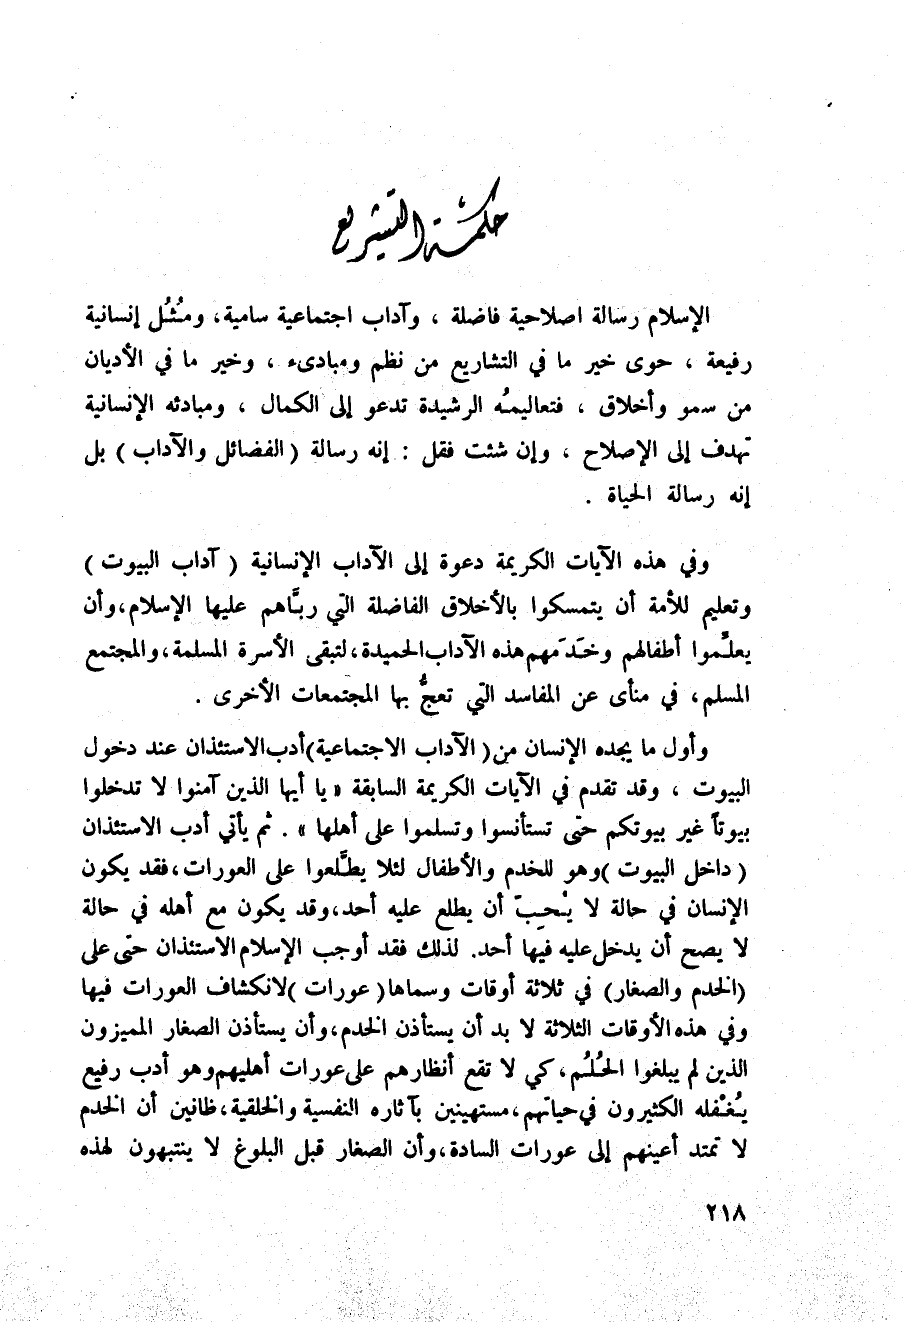 حكمة التشريع
الإسلام رسالة اصلاحية فاضلة ، وآداب اجتماعية سامية، ومُثُل إنسانية
رفيعة ، حوى خير ما في التشاريع من نظم ومبادىء ، وخير ما في الأديان
من سمو وأخلاق ، فتعاليمُه الرشيدة تدعو إلى الكمال ، ومبادئه الإنسانية
تهدف إلى الإصلاح ، وإن شئت فقل : إنه رسالة ( الفضائل والآداب ) بل
إنه رسالة الحياة .
وفي هذه الآيات الكريمة دعوة إلى الآداب الإنسانية ( آداب البيوت )
وتعليم للأمة أن يتمسكوا بالأخلاق الفاضلة التي ربَّاهم عليها الإسلام،وأن
يعلِّموا أطفالهم وخَدَمهم هذه الآداب الحميدة،لتبقى الأسرة المسلمة،والمجتمع
المسلم، في منأى عن المفاسد التي تعجُّ بها المجتمعات الأخرى .
وأول ما يجده الإنسان من( الآداب الاجتماعية)أدب الاستئذان عند دخول
البيوت ، وقد تقدم في الآيات الكريمة السابقة « يا أيها الذين آمنوا لا تدخلوا
بيوتاً غير بيوتكم حتى تستأنسوا وتسلموا على أهلها » . ثم يأتي أدب الاستئذان
( داخل البيوت )وهو للخدم والأطفال لئلا يطَّلعوا على العورات،فقد يكون
الإنسان في حالة لا يُحِبّ أن يطلع عليه أحد،وقد يكون مع أهله في حالة
لا يصح أن يدخل عليه فيها أحد. لذلك فقد أوجب الإسلام الاستئذان حتى على
(الخدم والصغار) في ثلاثة أوقات وسماها( عورات )لانكشاف العورات فيها
وفي هذه الأوقات الثلاثة لا بد أن يستأذن الخدم،وأن يستأذن الصغار المميزون
الذين لم يبلغوا الحُلُم، كي لا تقع أنظارهم على عورات أهليهم وهو أدب رفيع
يُغْفله الكثيرون في حياتهم،مستهينين بآثاره النفسية والخلقية،ظانين أن الخدم
لا تمتد أعينهم إلى عورات السادة،وأن الصغار قبل البلوغ لا ينتبهون لهذه
٢١٨